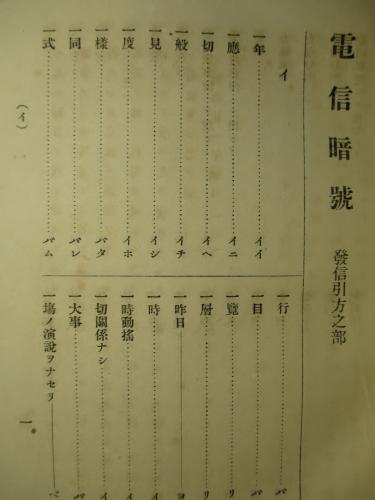 電信暗號 發信引方之部
イ
一年 イイ
一應 イニ
一切 イヘ
一般 イチ
一見 イシ
一度 イホ
一樣 バタ
一同 バレ
一式 バム
一行 バ
一目 バ
一覽 リ
一層 リ
一昨日 ヨ
一時 イ
一時動搖 イ
一切關係ナシ イ
一大事 バ
一塲ノ演說ヲナセリ
(イ)
一